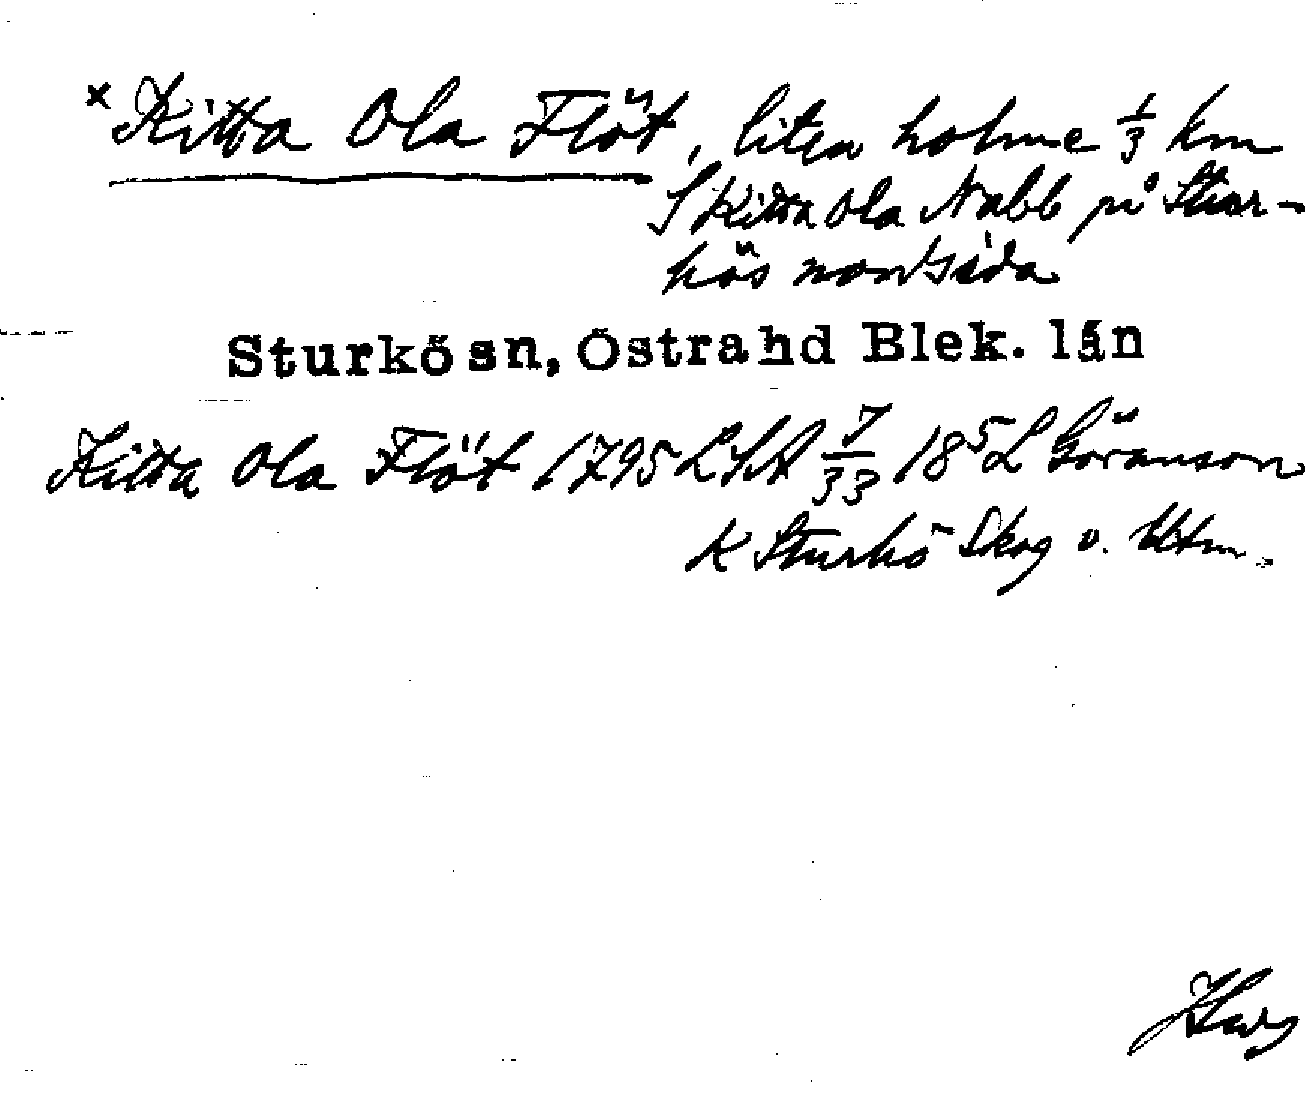 × Kitta Ola Flöt, liten holme 1/3 km
S Kitta Ola Nabb på Stur-
kös nordsida
Sturkö sn, Östra hd Blek. län
Kitta Ola Flöt 1795 LSA 7/33 18⁵ L Göranson
K Sturkö Skog o. Utm.